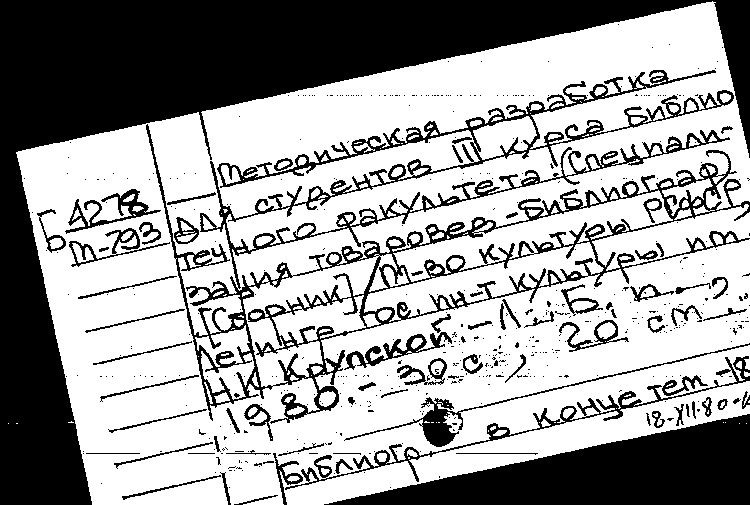 Методическая разработка
Б 4278
м-793
для студентов III курса библио
течного факультета: (Специали-
зация товаровед-библиограф)
.[Сборник] / М-во культуры РСФСР,
Ленингр. гос. ин-т культуры им.
Н.К. Крупской. - Л.: Б. и.
1980. - 30 с.; 20 см
Библиогр. в конце тем. -
18-XII-80